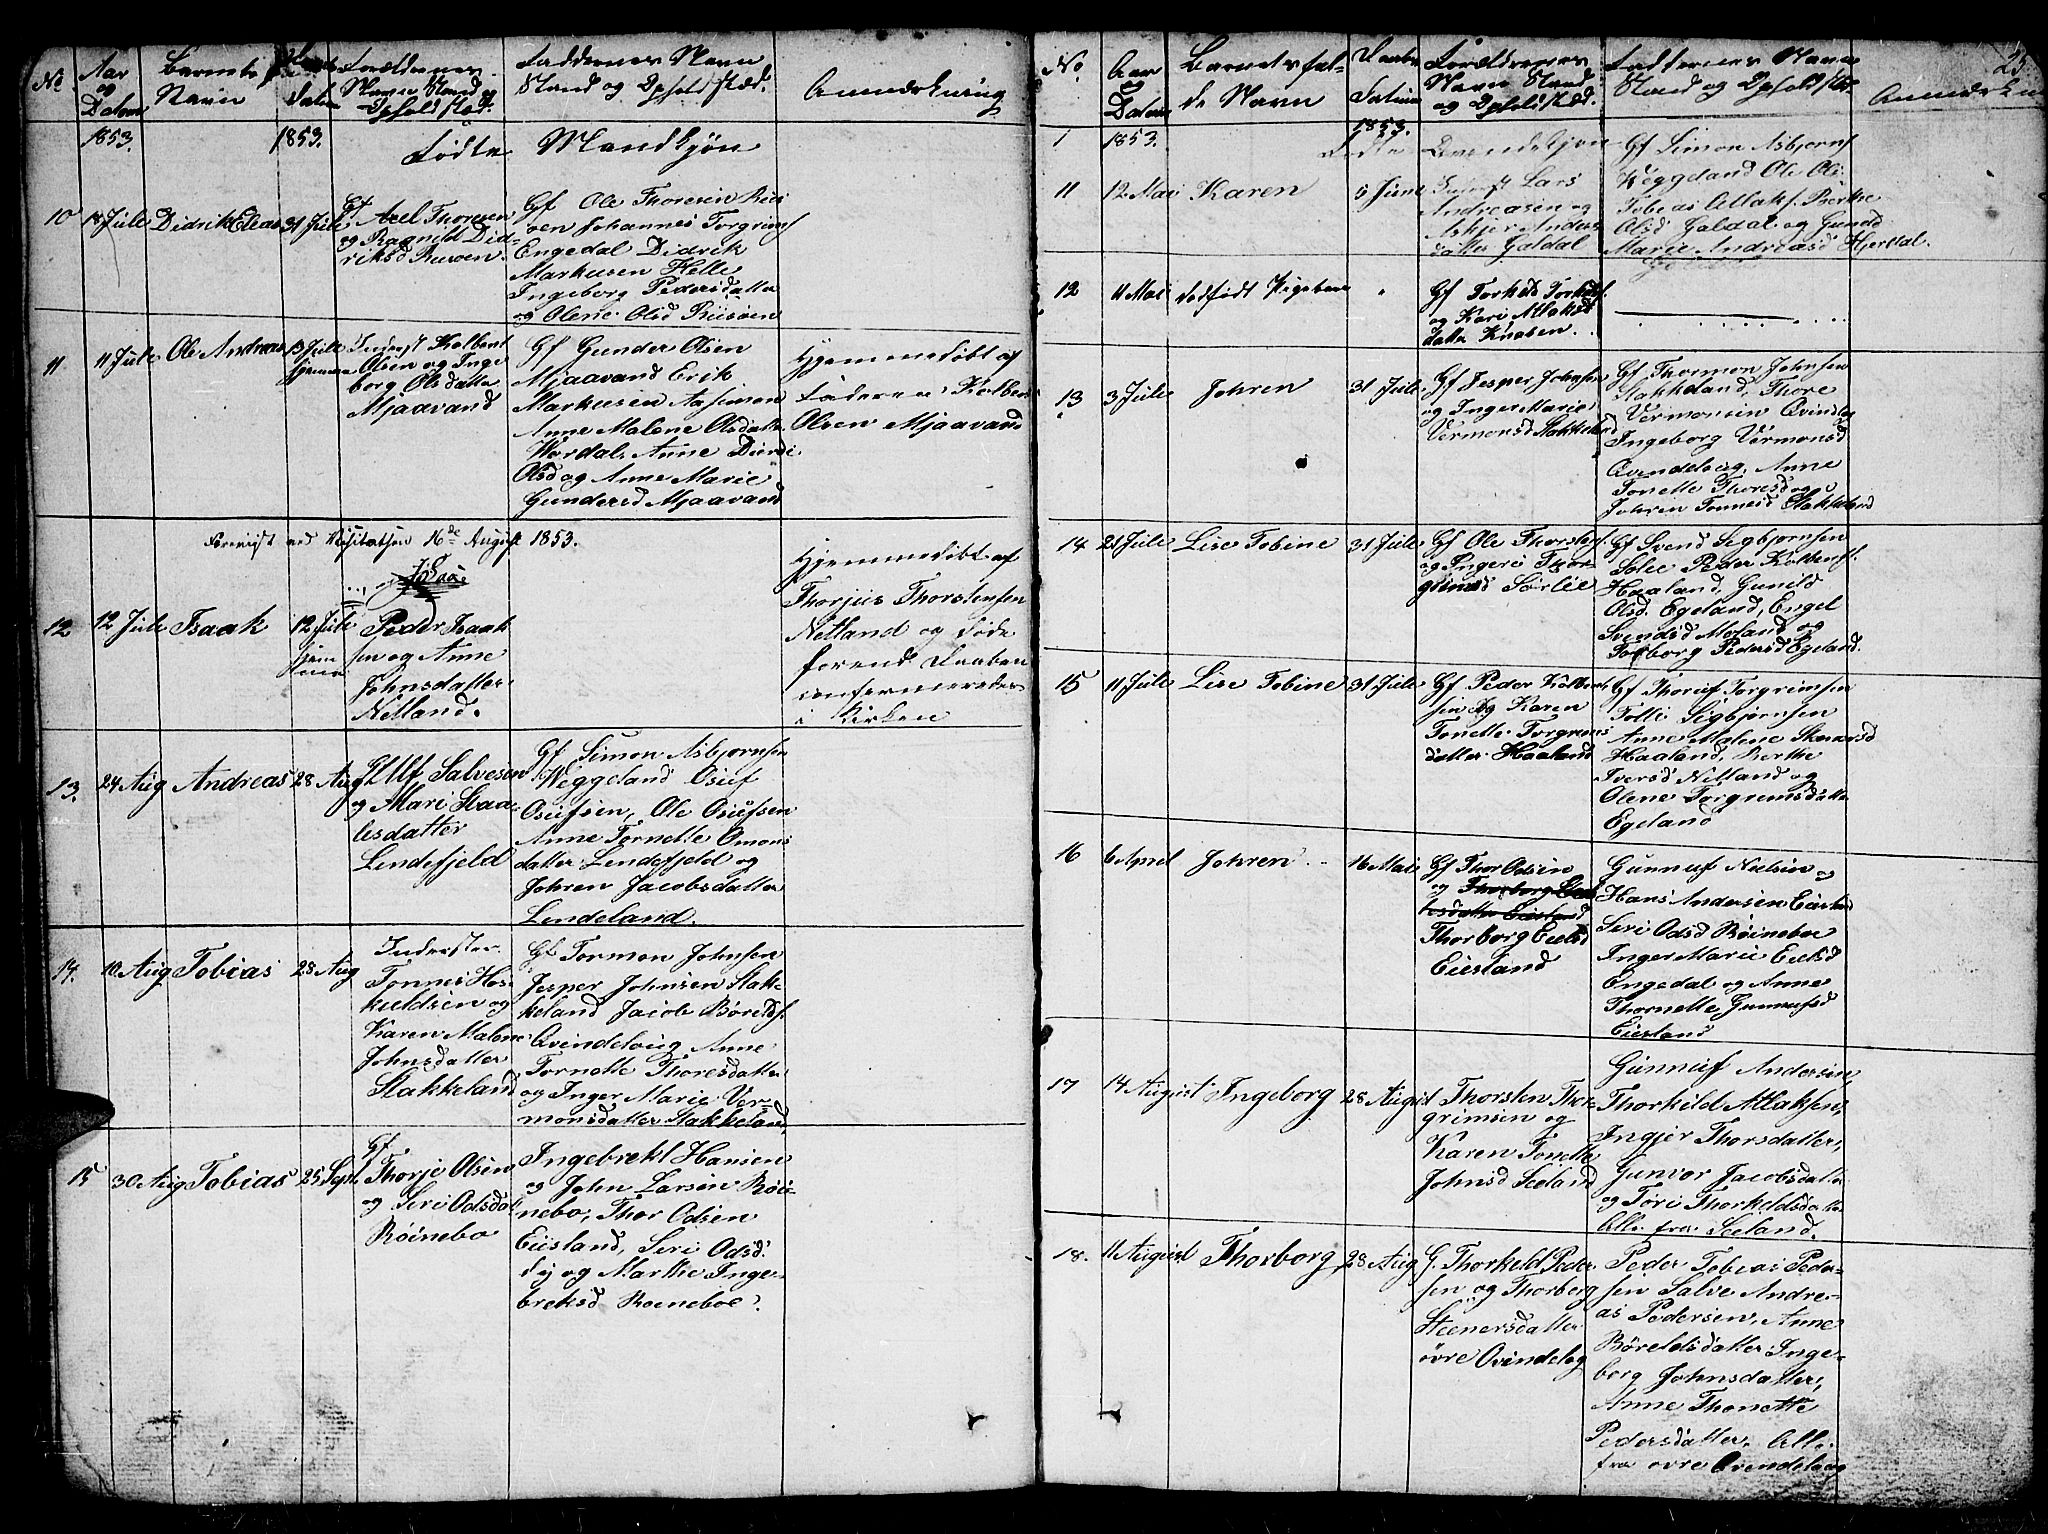 No
Aar
og
Datum
Barnets
Navn
Datum
Forældrenes
Navn Stand og
Opholdsted.
Faddernes Navn
Stand og Opholdsted.
Anmærkning
1853.
1853.
Fødte Mandkjøn
10
18 Jule
Didrik Eleas
31 Jule
Gf
Axel Thoresen
og Ragnild Did-
riksd Rusøen
Gf Ole Thoresen Rus
øen Johannes Torgrims
Engedal Didrik
Markusen Helle
Ingeborg Pedersdatter
og Olene Olsd Rusøen
11
11 Jule
Ole Andreas
13 Jule
Hjemme
Inderst Kolbent
Olsen og Inge
borg Olsdatter
Mjaavand
Gf Gunder Olsen
Mjaavand Erik
Markusen Aasimon
Anne Malene Olsdatt.
Wordal, Anne Dorthe
Olsd og Anne Marie
Gundersd Mjaavand
Hjemmedøbt af
Faderen Kolben
Olsen Mjaavand
Forevist ved Visitatsen 16de August 1853.
J Saa.
12
12 Jule
Isaak
12 Jule
hjem
me
Peder Isaak
sen og Anne
Johnsdatter
Netland.
Hjemmedøbt af
Thorjus Thorstensen
Netland og døde
forend Daaben
confermeredes
i Kirken
13.
24 Aug
Andreas
28 Aug
Gf Ulf Salvesen
og Mari Staa-
lesdatter
Lendefjeld
Gf Simon Asbjornsen
Weggeland Osuf
Osufsen, Ole Osufsen
Anne Tornette Omons
datter Lendefjeld og
Johren Jacobsdatter
Lendeland.
14.
10 Aug
Tobias
28 Aug
Inderster
Tonnes Hos-
kuldsen og
Karen Malene
Johnsdatter
Stakkeland
Gf Tormon Johnsen
Jesper Johnsen Stak-
keland Jacob Børelds.
Ovindeloug Anne
Tornette Thoresdatter
og Inger Marie Ver-
monsdatter Stakkeland,
15
30 Aug
Tobias
25 Sept.
Gf
Thorje Olsen
og Seri Odsdat
Røinebo
Ingebrekt Hansen
og John Larsen Røi-
nebo, Thor Odsen
Eiesland, Seri Odsd.
dy og Marthe Inge-
breksd Roeneboe.
No
Aar
og
Datum
Barnets ful-
de Navn
Daabs
Datum
Forældrenes
Navn Stand
og Opholdsted.
Faddernes Navn
Stand og Opholdsted
Anmærkn
25
1
1853.
1853.
Fødte Qvindekjøn
11
12 Mai
Karen
5 June
Inderst Lars
Andreasen og
Asbjer Anders
datter Galdal
Gf Simon Asbjornsf
Weggeland Ole Ols
Tobias Atlaks. Berthe
Olsd Galdal og Gunild
Marie Andreasd Hjerdal.
12
11 Mai
dødfødt Pigebarn
"
Gf Torkels Torkels.
og Kari Atlaksd
datter Knaben.
13
3 Jule
Johren
31 Jule
Gf Jesper Johnsen
og Inger Marie
Vermonsd Stakkeland
Gf Thormon Johnsen
Stakkeland, Thore
Vermonsen Qvindlog
Ingeborg Vermonsd
Qvendeloug, Anne
Tonette Thoresd og
Johren Tonnesd Stakkeland
14
21 Jule
Lise Tobine
31 Jule
Gf Ole Thorstens.
og Ingeri Thor-
grimsd Sørlie
Gf Svend Sigbjornsen
Solie Peder Kolbensf.
Haaland, Gunild
Olsd. Egeland, Engel
Svendsd Moland og
Torborg Pedersd Egeland.
15
11 Jule
Lise Tobine
31 Jule
Gf Peder Kolben
sen og Karen
Tonette Torgrims
datter Haaland
Gf Thoruf Torgrimsen
Tolli Sigbjornsen
Anne Malene Steenersd
Haaland, Berthe
Iversd Netland og
Olene Torgrimsdatter
Egeland
16
6 April
Johren
16 Mai
Gf Thor Odsen
og Thorborg Staa
lesdatter Eiesland
Thorborg Eelsd
Eiesland
Gunnuf Nielsen og
Hans Andersen Eiesland
Seri Odsd Røineboe
Inger Marie Eelsd
Engedal og Anne
Thornette Gunnufsd
Eiesland
17
14 August
Ingeborg
28 August
Thorsten Thor-
grimsen og
Karen Tonette
Johnsd Seeland
Gunnuf Andersen,
Thorkild Atlaksen,
Ingjer Thorsdatter,
Gunvor Jacobsdatter
og Tori Thorkeldsdatter
Alle fra Seeland.
18.
11 August
Thorborg
28 Aug
G. Thorkeld Peder-
sen og Thorberg
Steenersdatter
øvre Ovindelog
Peder Tobias Peder-
sen Salve Andre-
as Pedersen, Anne
Børeldsdatter Inge-
borg Johnsdatter,
Anne Thonette
Pedersdatter. Alle
fra øvre Ovendeloug